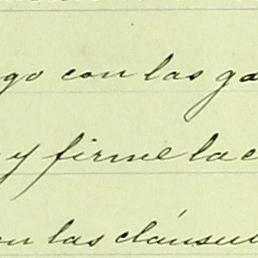 go con las ga
y firme la c
en las cláusul